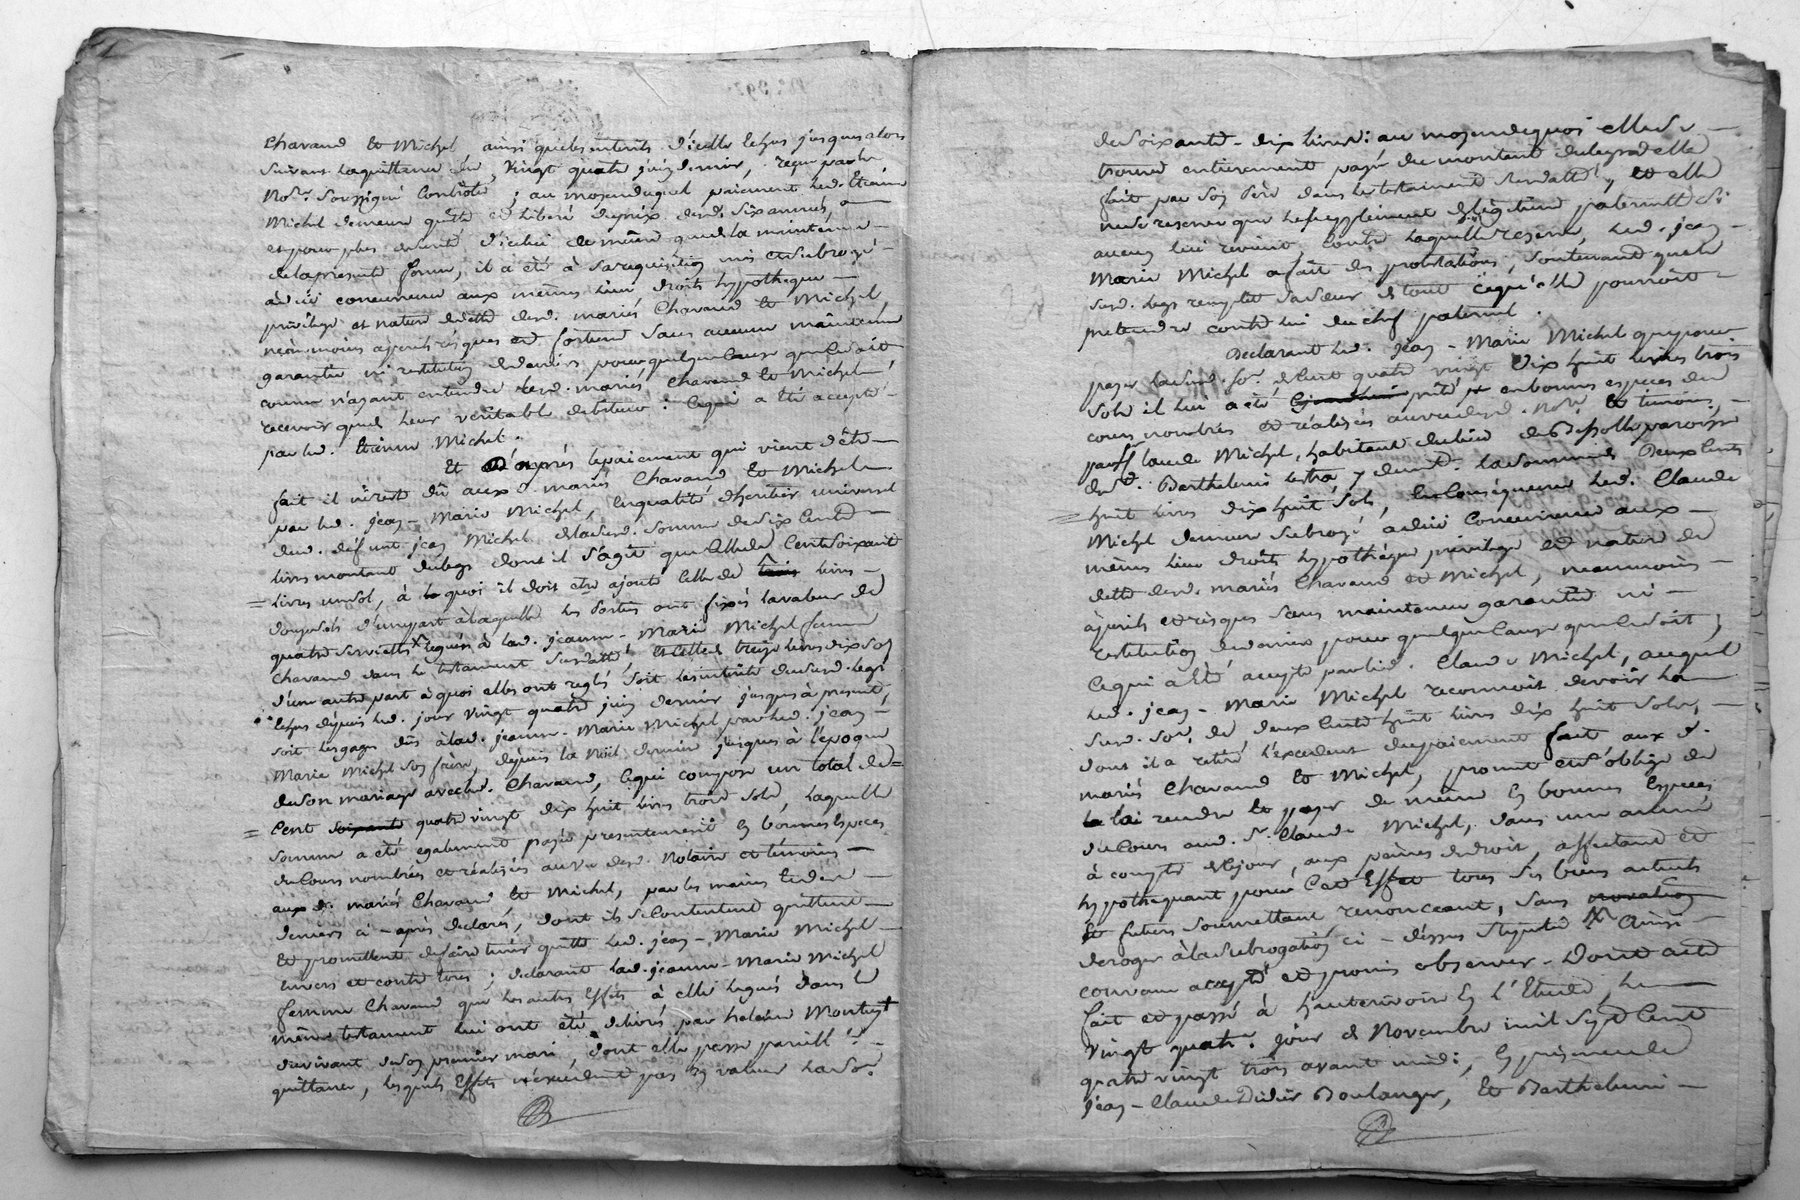 Chavand et Michel ainsi que les interets d'icelle echus jusques alors
suivant la quittance du vingt quatre juin dernier, reçue par le
No.re soussigné Contrôlé ; au moyen duquel paiement led. Etienne
Michel demeure quitte et libéré du prix desd. six années,
et pour plus de sureté d'icelui de même que de la maintenue
de la presente ferme, il a été à sa requisition mis et subrogé
à due concurrence aux mêmes lieu droits hypotheque
privilege et nature de dette desd. mariés Chavand et Michel,
néanmoins à perils risques et fortune sans aucune maintenue
garantie ni restitution de deniers pour quelque cause que ce soit,
comme n'ayant entendu lesd. mariés Chavand et Michel
recevoir que de leur veritable debiteur : Ce qui a été accepté
par led. Etienne Michel.
Et d'après le paiement qui vient d'être
fait il n'est dû aux d. mariés Chavand et Michel
par led. jean - Marie Michel, en qualité d'heritier universel
dud. défunt jean Michel de la susd. somme de six Cent
livres montant du legs dont il s'agit que Celle de Cent soixante
livres un sol, à quoi il doit être ajouté Celle de livres
douze sols d'une part à laquelle les parties ont fixés la valeur de
quatre serviettes léguées à lad. jeanne - Marie Michel femme
Chavand dans le testament susdatté, et Celle de treize livres dix sols
d'une autre part à quoi elles ont reglé soit les interêts du susd. legs
echus depuis led. jour vingt quatre juin dernier jusques à présent,
soit les gages dûs à lad. jeanne - Marie Michel par led. jean
Marie Michel son frère, depuis la Noël dernier jusques à l'époque
de son mariage avec led. Chavand, Ce qui compose un total de
Cent soixante quatre vingt dix huit livres trois sols, laquelle
somme a été egalement payée presentement En bonnes Especes
du Cours nombrées et réalisées au vu desd. Notaire et témoins
aux d. mariés Chavand et Michel, par les mains et des
deniers ci - après declarés, dont ils se Contentent quittent
et promettent de faire tenir quitte led. jean - Marie Michel
envers et contre tous ; declarant lad. jeanne - Marie Michel
femme Chavand que les autres Effets à elle legués dans le
même testament lui ont été délivrés par helaine
survivant de son premier mari, dont elle passe pareille
quittance, lesquels Effets n'excedent pas En valeur la so.e
de soixante - dix livres : au moyen de quoi elle se
trouve entierement payée du montant du legs à elle
fait par son Père dans le testament susdatté, et elle
ne se reserve que le supplement de légitime paternelle si
aucun lui revient contre laquelle reserve, led. jean
Marie Michel a fait des protestations, soutenant que le
susd. legs remplit sa sœur de tout ce qu'elle pourroit
pretendre contre lui du chef paternel.
Declarant led. jean - Marie Michel que pour
payer la susd. so.e de Cent quatre vingt dix huit livres trois
sols il lui a été prêté en bonnes especes du
cours nombrées et réalisées au vu desd. No.re et temoins,
par s.r Claude Michel, habitant du lieu de paroisse
de S.t Barthelemi lestra, y devant, la somme de Deux Cents
huit livres dix huit sols, En Conséquence led. Claude
Michel demeure subrogé à due Concurrence aux
mêmes lieu droits hypothèque privilege et nature de
dette desd. mariés Chavand et Michel, neanmoins
à perils et risques sans maintenue garantie ni
restitution de deniers pour quelque Cause que Ce soit ;
Ce qui a Eté accepté par led. Claude Michel, auquel
led. jean - Marie Michel reconnoit devoir la
susd. so.e de deux Cents huit livres dix huit sols,
dont il a retiré l'excedent du paiement fait aux d.
mariés Chavand et Michel, promet et s'oblige de
la lui rendre et payer de même En bonnes Especes
du Cours aud. s.r Claude Michel, dans une année
à compter de ce jour, aux peines de droit, affectant et
hypothequant pour Cet Effet tous ses biens presents
et futurs soumettant renonceant, sans novation
deroger à la subrogation ci - dessus stipulée X Ainsi
convenu accepté et promis observer - Dont acte
fait et passé à hauterivoire En l'Etude, le
vingt quatre. jour de Novembre mil sept Cent
quatre vingt trois avant midi, En presence de
jean - Claude Didier Boulanger, Et Barthelemi